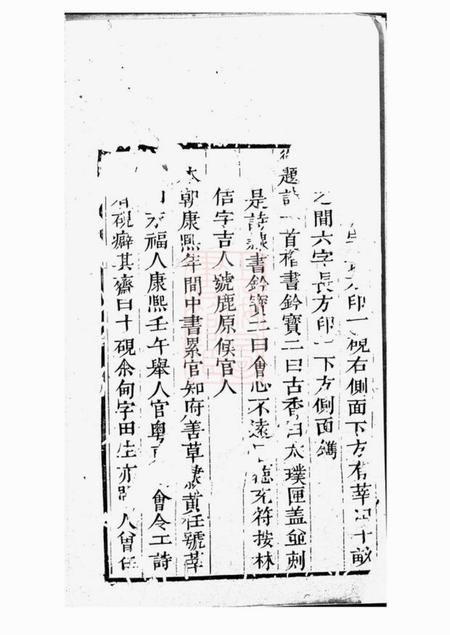 印一硯右側面下方有莘田十畝
之間六字長方印一下方側面鐫
題詩一首楷書鈐寶二曰古香曰太璞匣盖並刻
是詩隸書鈐寶二曰會心不遠曰德充符按林
佶字吉人號鹿原候官人
朝康熙年間中書累官知府善草隸黃任號莘
福人康熙壬午舉人官粵 會令工詩
硯癖其齋曰十硯余甸字田生亦閩人曾任